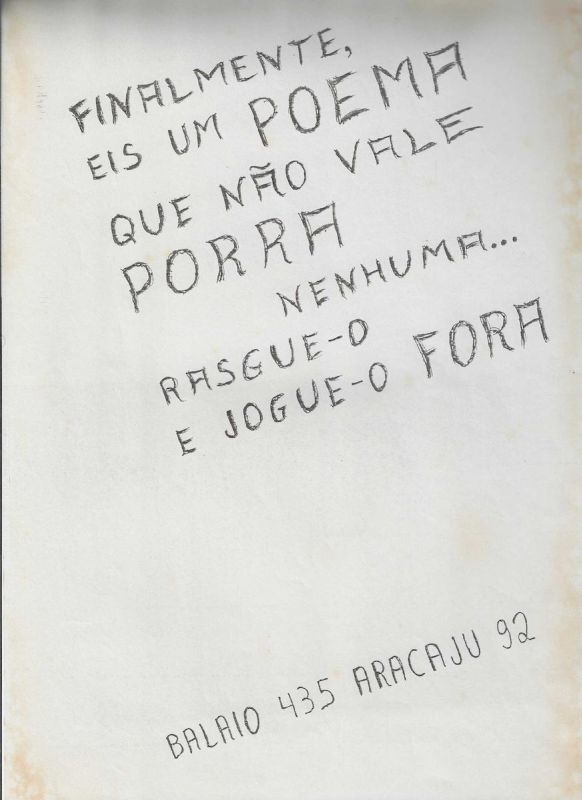 FINALMENTE,
EIS UM POEMA
QUE NÃO VALE
PORRA
NENHUMA...
RASGUE-O
E JOGUE-O FORA
BALAIO 435 ARACAJU 92